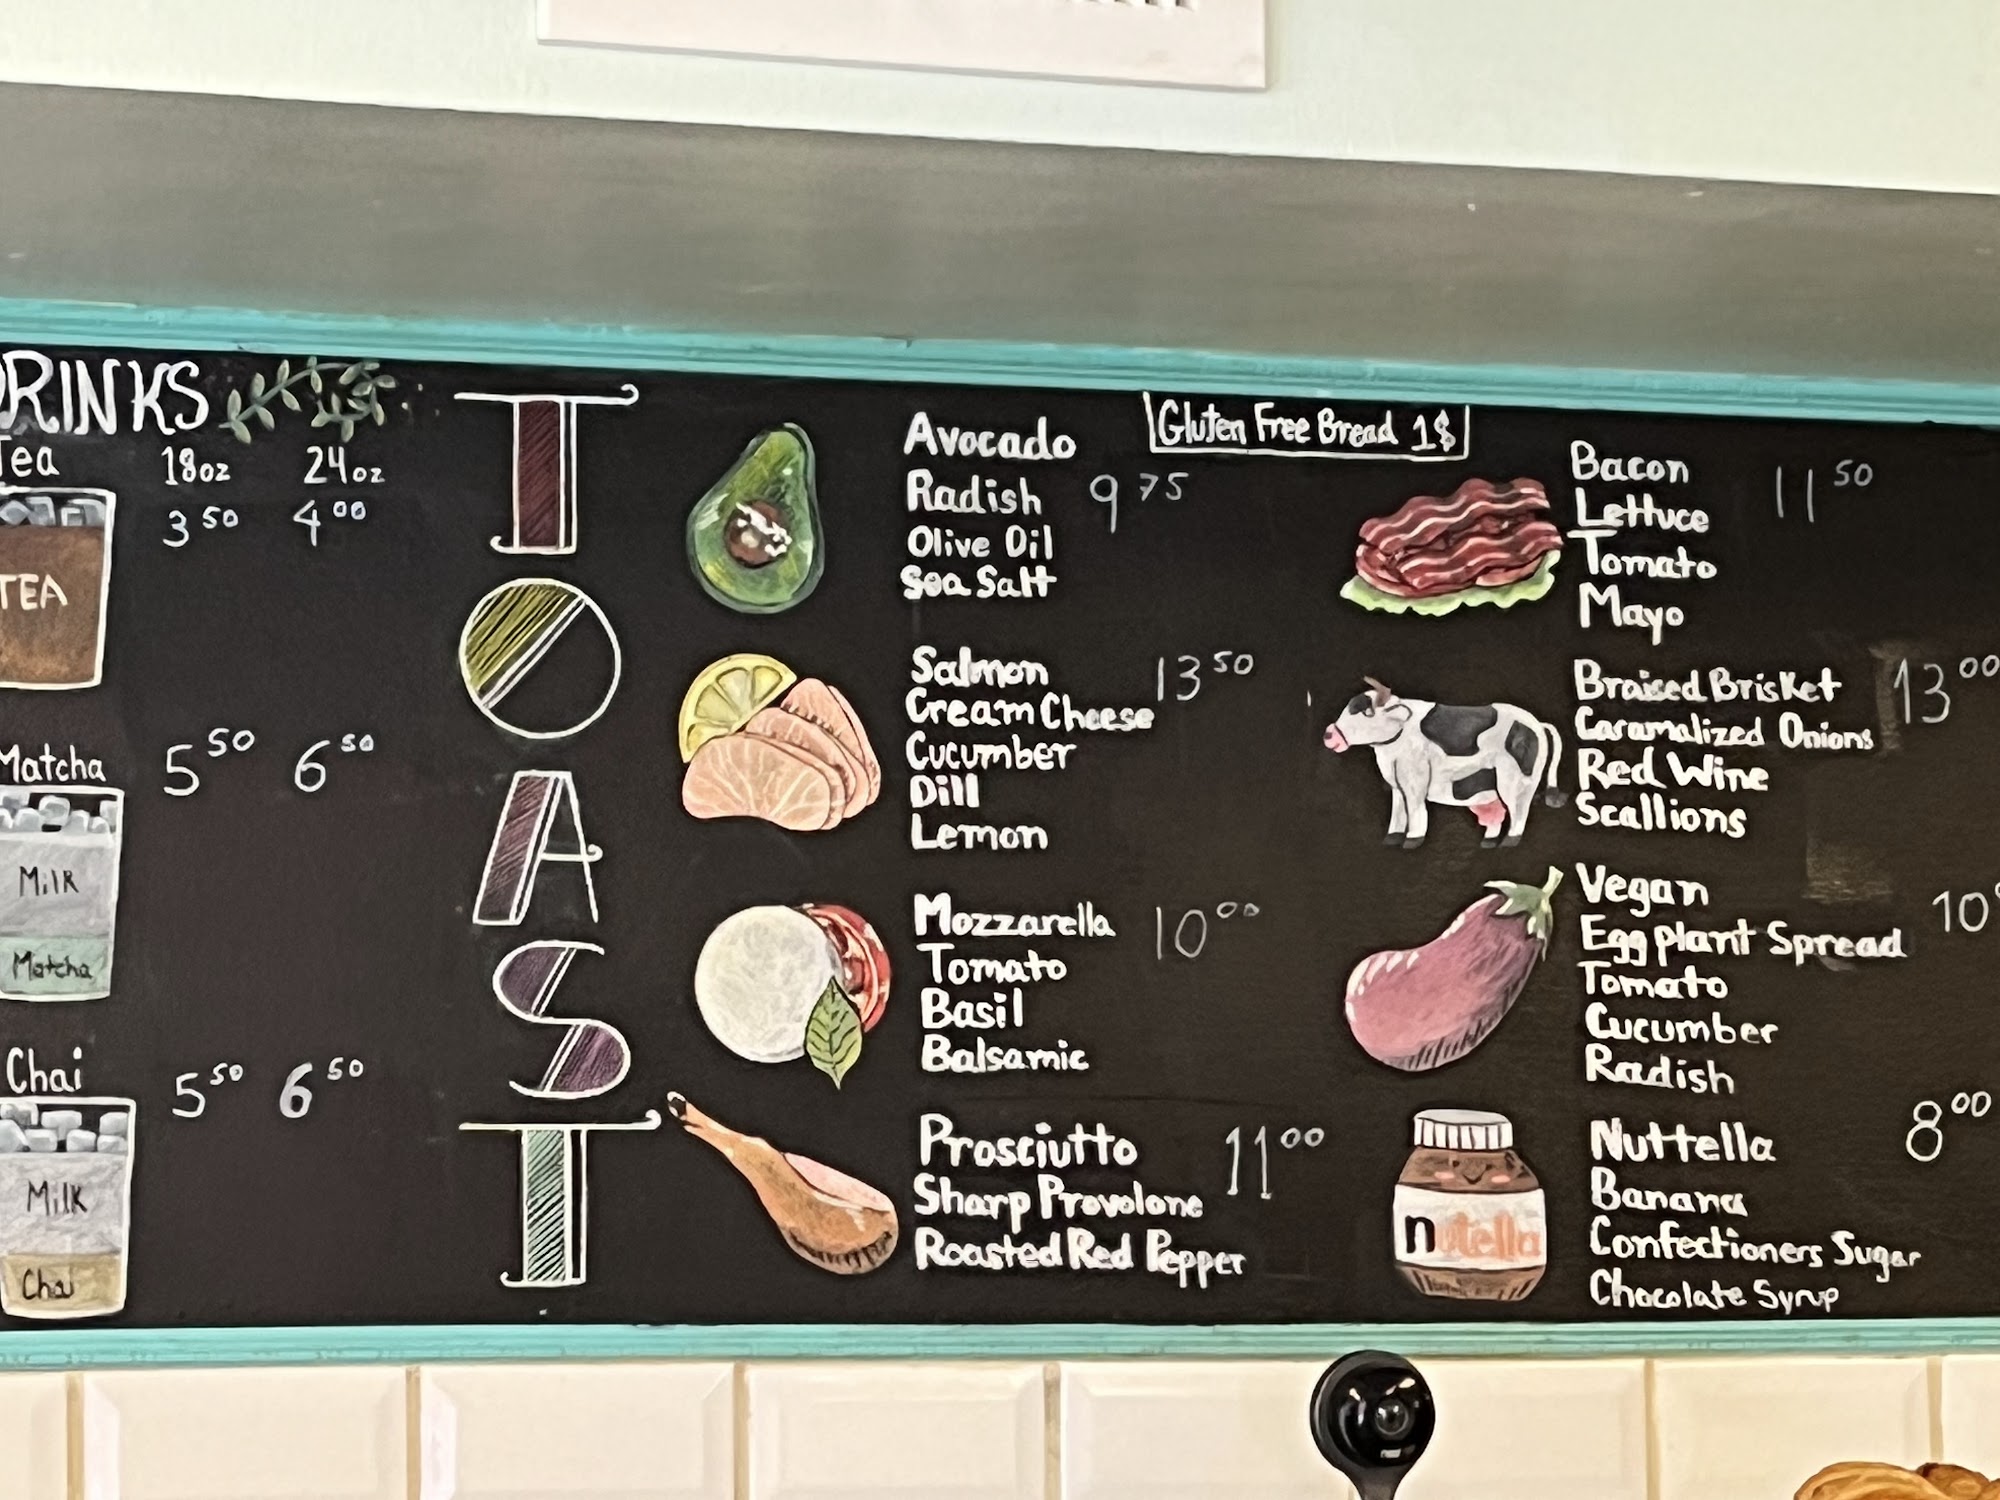 DRINKS
Tea 18oz 24oz
3 50 4 00
TEA
Matcha 5 50 6 50
Milk
Matcha
Chai 5 50 6 50
Milk
Chai
TOAST
Gluten Free Bread 1$
Avocado
Radish 9 75
Olive Oil
Sea Salt
Salmon 13 50
Cream Cheese
Cucumber
Dill
Lemon
Mozzarella 10 00
Tomato
Basil
Balsamic
Prosciutto 11 00
Sharp Provolone
Roasted Red Pepper
Bacon 11 50
Lettuce
Tomato
Mayo
Braised Brisket 13 00
Caramalized Onions
Red Wine
Scallions
Vegan 10
Eggplant Spread
Tomato
Cucumber
Radish
Nuttella 8 00
Banana
Confectioners Sugar
Chocolate Syrup
nutella